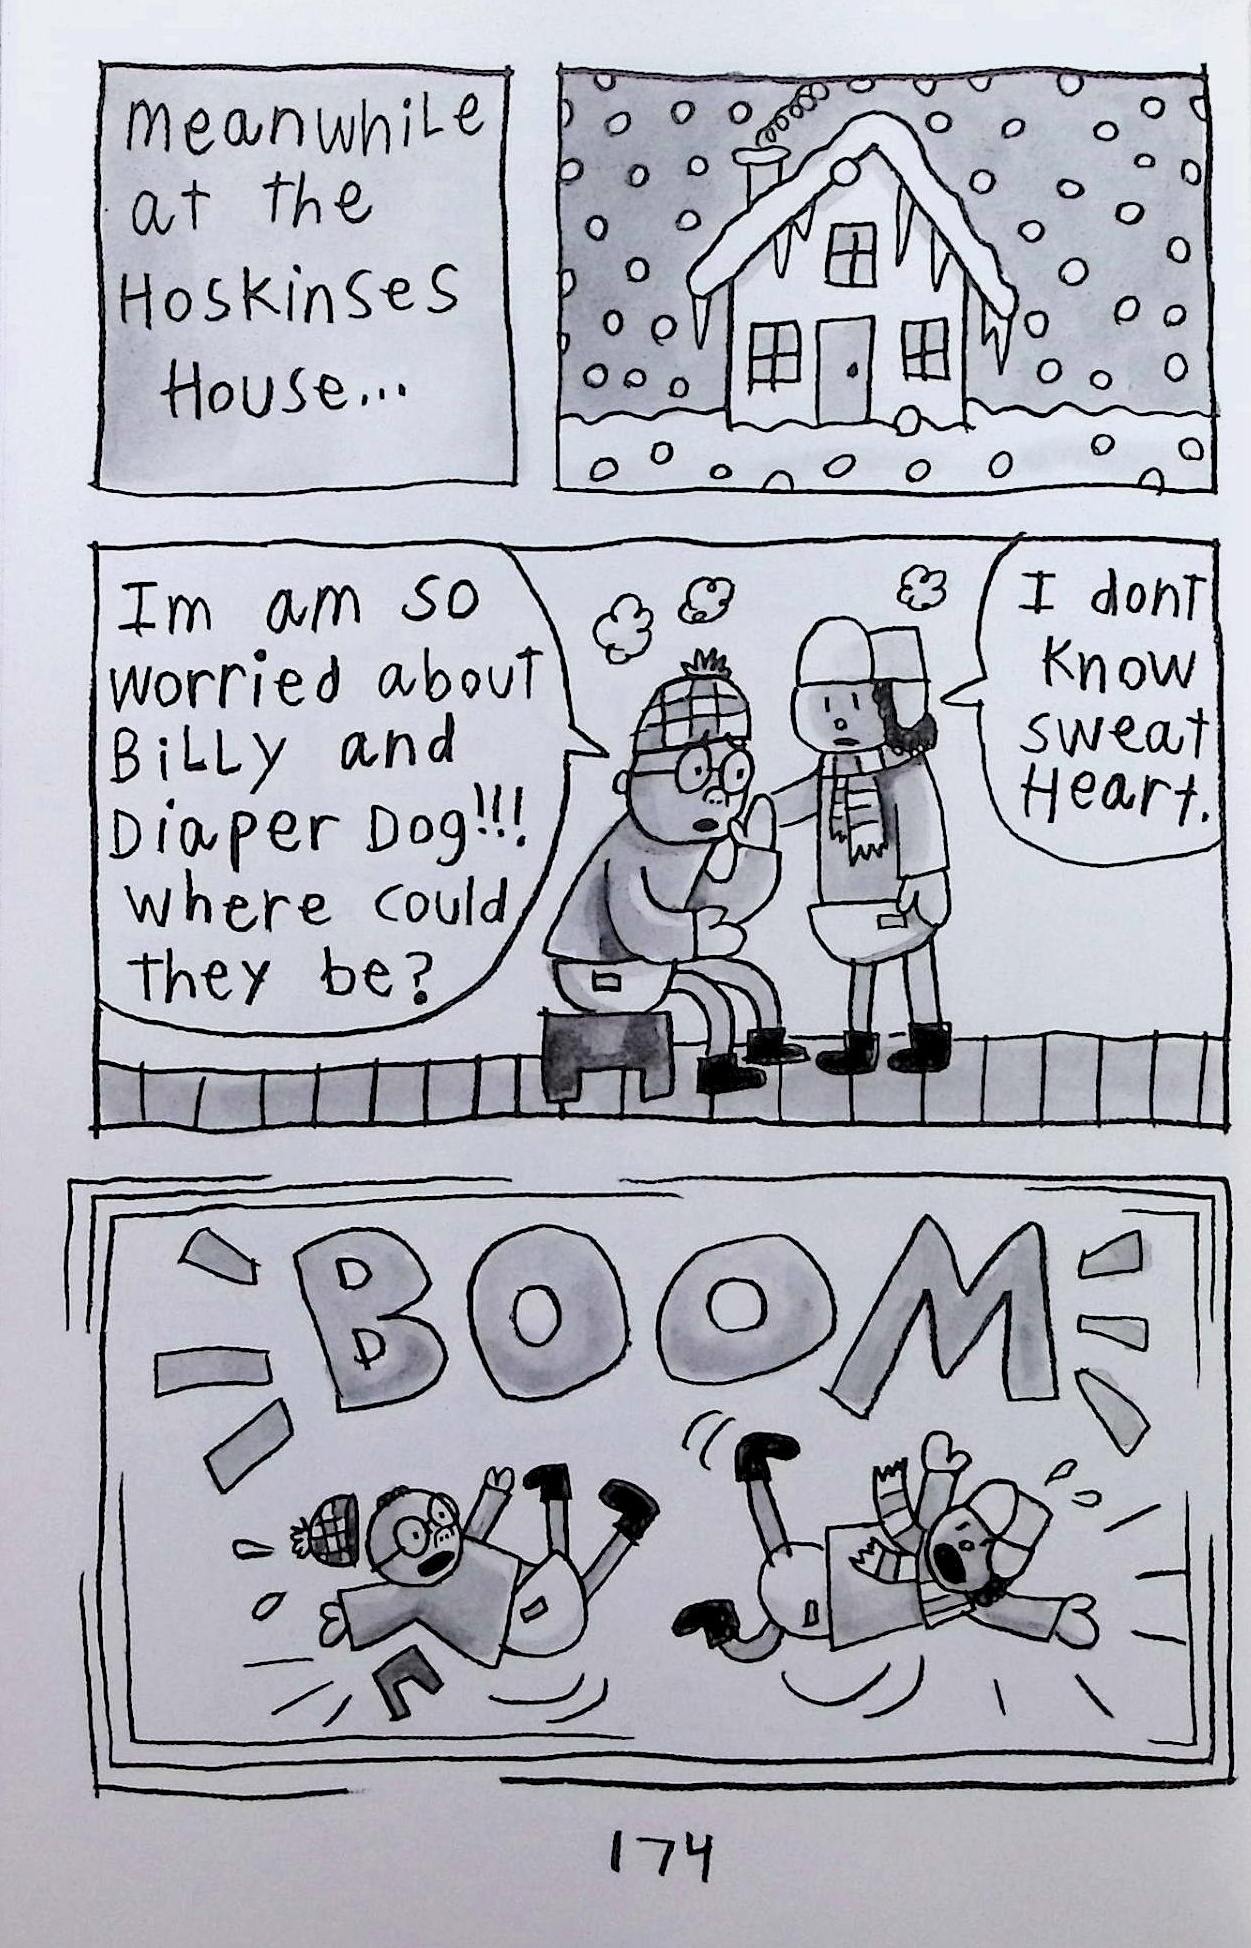 meanwhile
at the
Hoskinses
House...
Im am so
worried about
Billy and
Diaper Dog!!!
where could
they be?
I dont
know
sweat
Heart.
BOOM
174